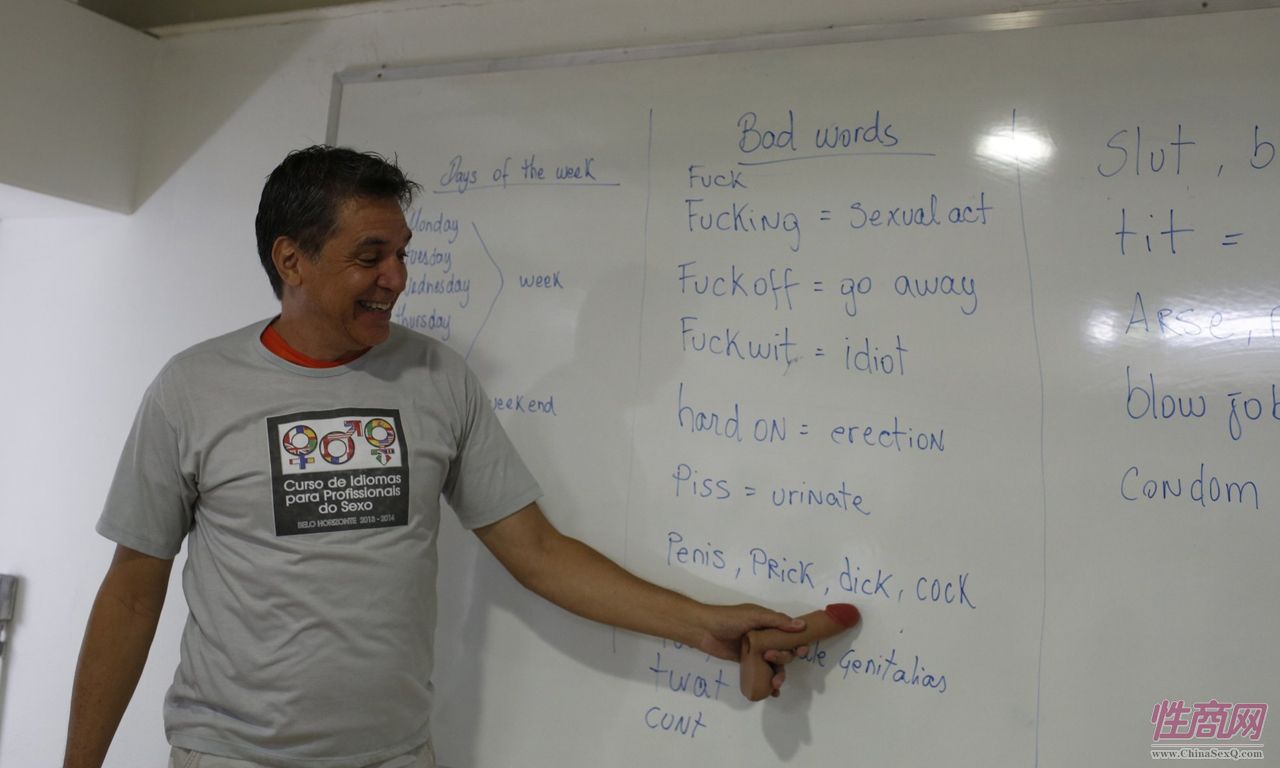 Days of the week
Monday
Tuesday
Wednesday
thursday
week
weekend
Bad words
Fuck
Fucking = sexual act
Fuck off = go away
Fuckwit = idiot
hard on = erection
Piss = urinate
Penis, Prick, dick, cock
Genitalias
twat
cunt
Slut, b
tit =
Arse,
blow job
Condom
Curso de Idiomas
para Profissionais
do Sexo
BELO HORIZONTE 2013 - 2014
性商网
www.ChinaSexQ.com